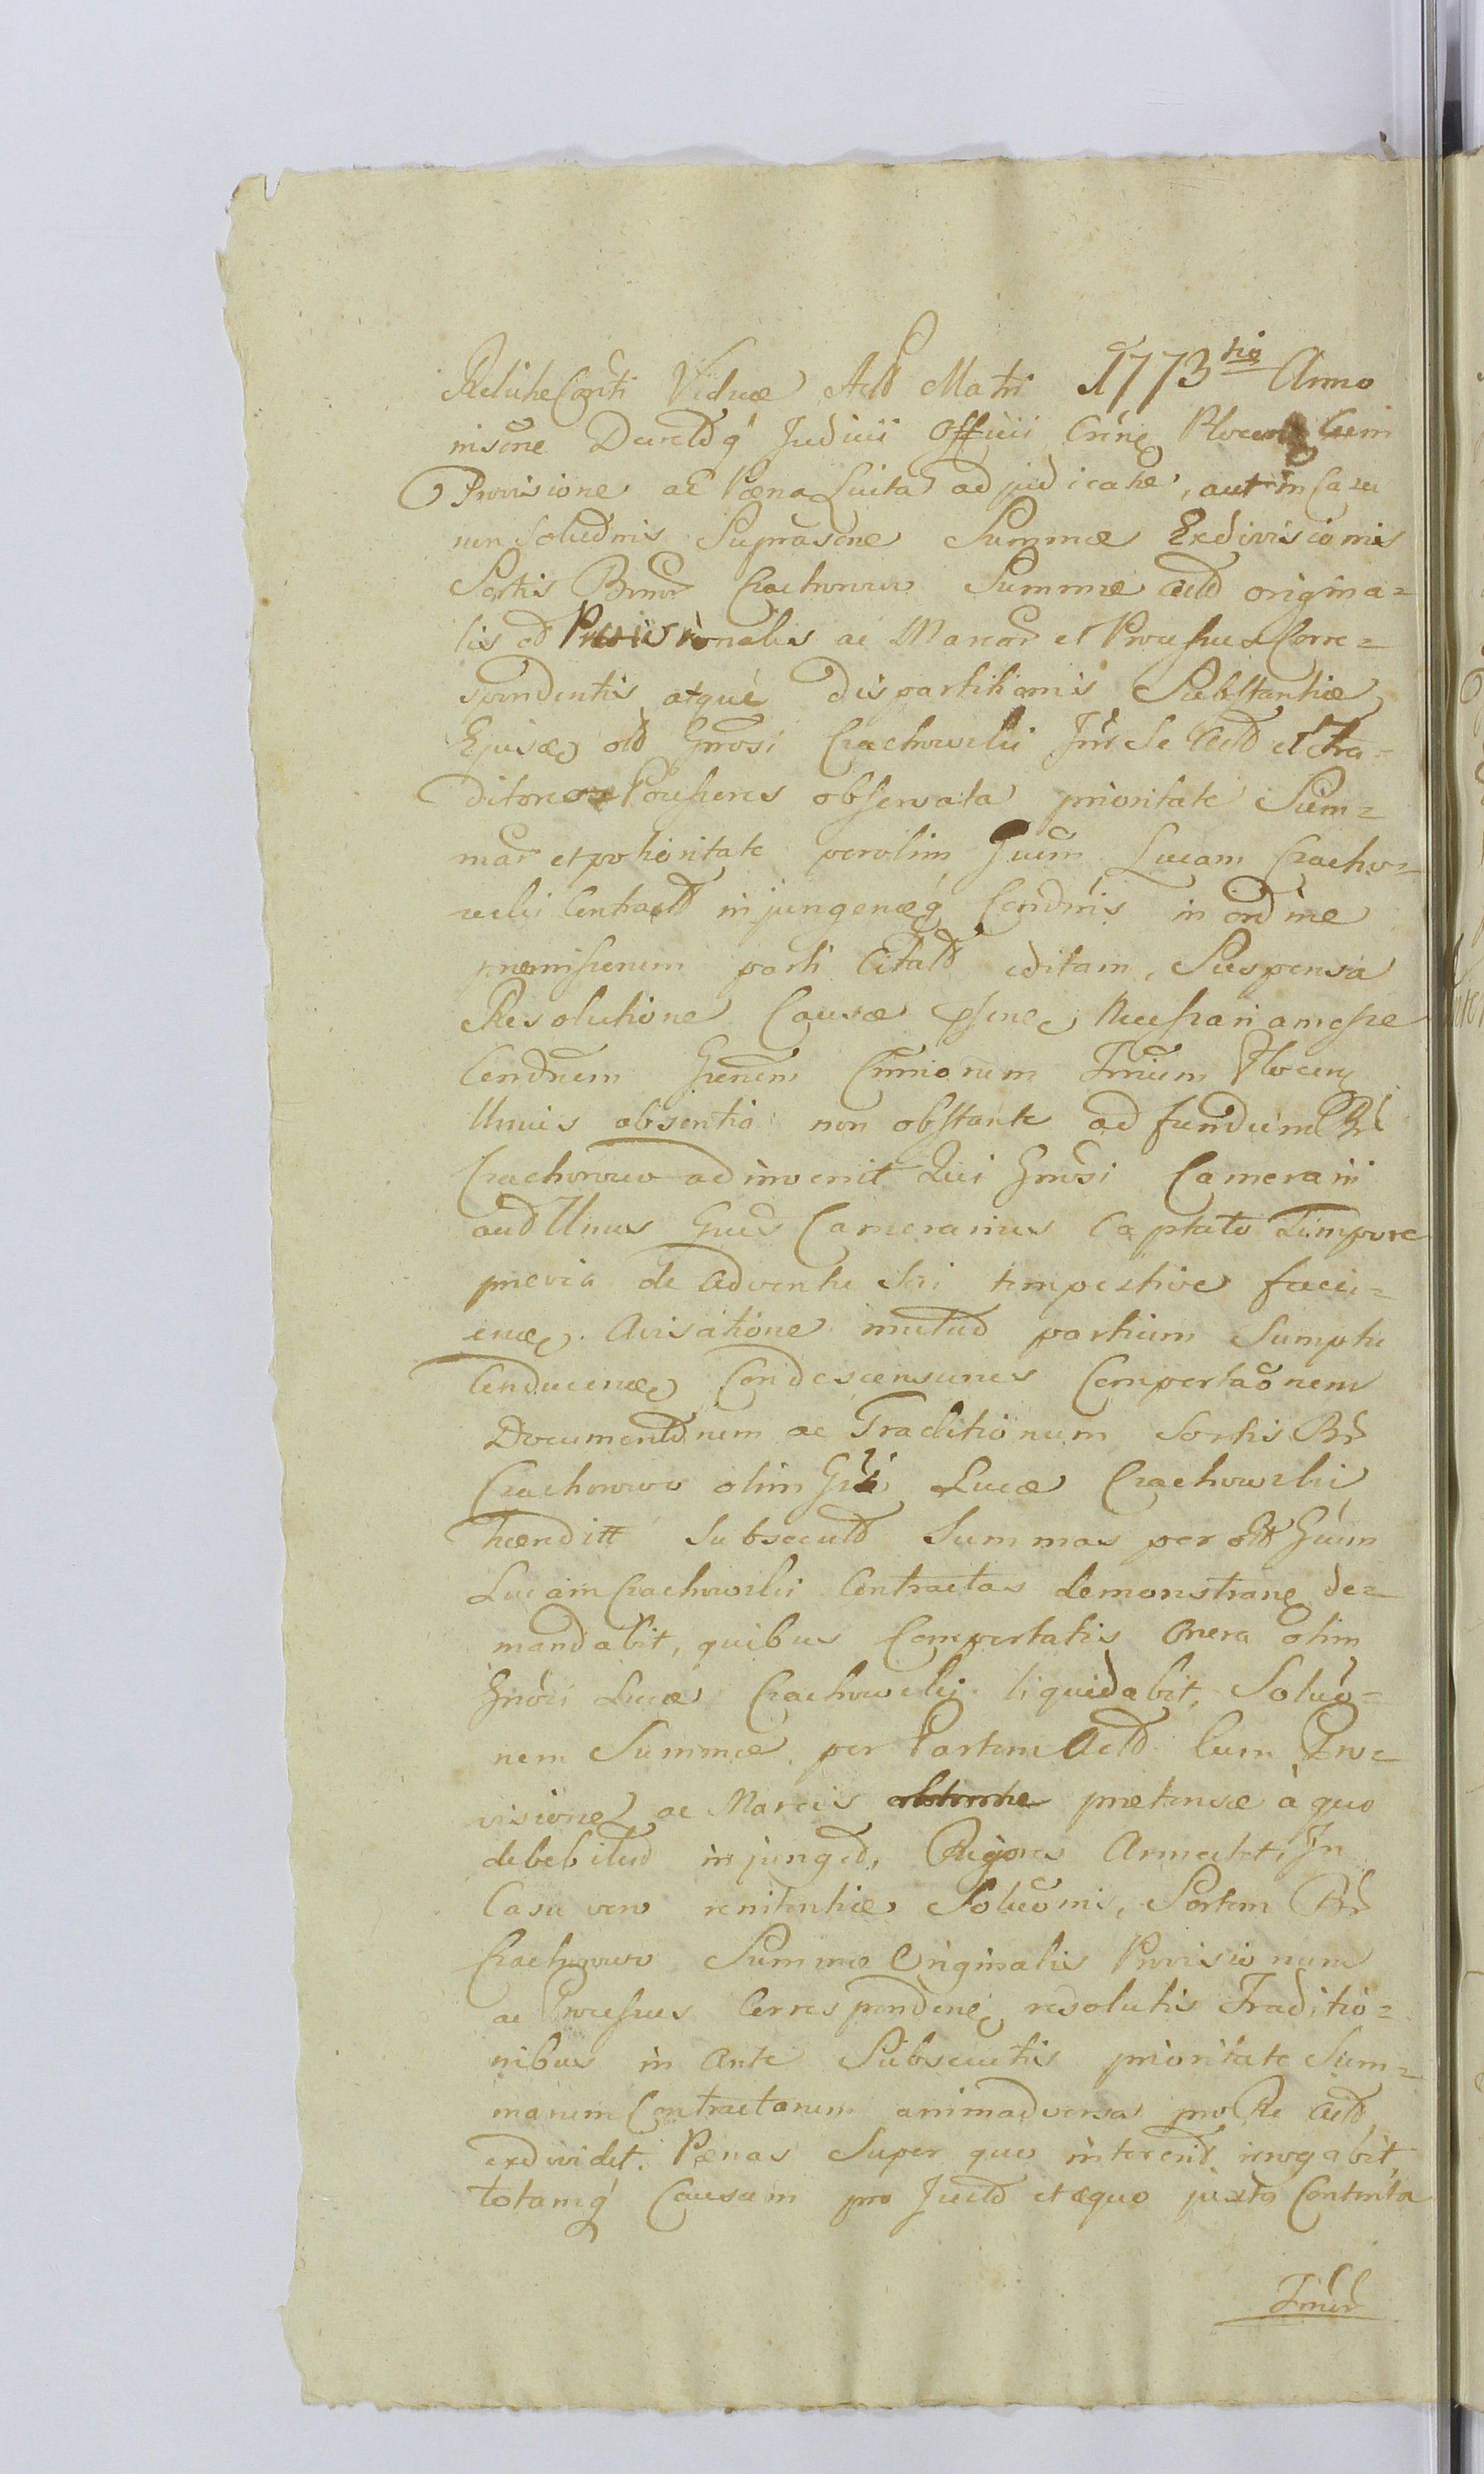 Relictæ Viduæ Actð Matri 1773tio Anno
Decretðq́ Judicii Officii Plocen Cum
Provisione ac Pæna Luita adjudicatæ, aut in Casu
non Suprascrte Summæ Exdivisionis
Sortis Bonor̃ Crachowo Summæ actð origina=
lis et Provisionalis ac Marcar̃ et Processus Corre=
spondentis atque dispartitionis Substantiæ
old Gnrosi Crachowski Intr Se et Cre=
ditores Possessores observata prioritate Sum=
mar̃ et potioritate per olim Gnum Lucam Cracho=
wski Contractð injungenæq́ in ordine
præmissorum parti Citatð editam, Suspensa
Resolutione Causæ psene, Necessariam esse
Condnem Cmmionem Trium Plocen
Unius absentia non obstante ad fundum Br̃
Crachowo adinvenit Qui Gnrosi Camerarii
aud Unus Gnus Camerarius Captato Tempore
prævia de adventu Sui tempestive faci=
enæ. Avisatione mutuð partium Sumptu
Conducenæ Condescensuros Comportaõnem
Documentðrum ac Traditionum Sortis Br̃
Crachowo olim Gnrsi Lucæ Crachowski
hæreditt Subsecutð Summas per olð Gnum
Lucam Crachowski Contractas demonstrane de=
mandabit, quibus Comportatis Onera olim
Gnrosi Lucæ Crachowski liquidabit, Soluõ=
nem Summæ per Partem Actð Cum Pro=
visione ac Marcis prætensæ à quo
debebitur injunget, Rigores Annectet, In
Casu vero renitentiæ Soluõnis, Sortem Br̃
Crachowo Summæ Originalis Provisionum
ac Processus Correspondene, resolutis Traditio=
nibus in Ante Subsecutis prioritate Sum=
marum Contractarum animadversa pro Re actð
exdividet. Pænas Super quo intererit irrogabit,
totamq́ Causam pro Justð et æquo juxta Contenta